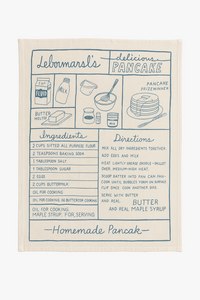 Lebormarsl's
delicious
PANCAKE
PANCAKE
PRIZEWINNER
BUTTER
MELTED
Ingredients
2 CUPS SIFTED ALL PURPOSE FLOUR
2 TEASPOONS BAKING SODA
1 TABLESPOON SALT
1 TABLESPOON SUGAR
2 EGGS
2 CUPS BUTTERMILK
OIL FOR COOKING
OIL FOR COOKING, IN BUTTER FOR COOKING
OIL FOR COOKING.
MAPLE STRUP. FOR SERVING
Directions
MIX ALL DRY INGREDIENTS TOGETHER.
ADD EGGS AND MILK
HEAT LIGHTLY GREASE
OVER MEDIUM-HIGH HEAT.
SCOOP BATTER INTO PAN. CAN PAN-
COOK UNTIL BUBBLES FORM ON SURFACE
FLIP AND COOK ANOTHER SIDE.
SERVE WITH BUTTER
AND REAL BUTTER
AND REAL MAPLE SYRUP
Homemade Pancak